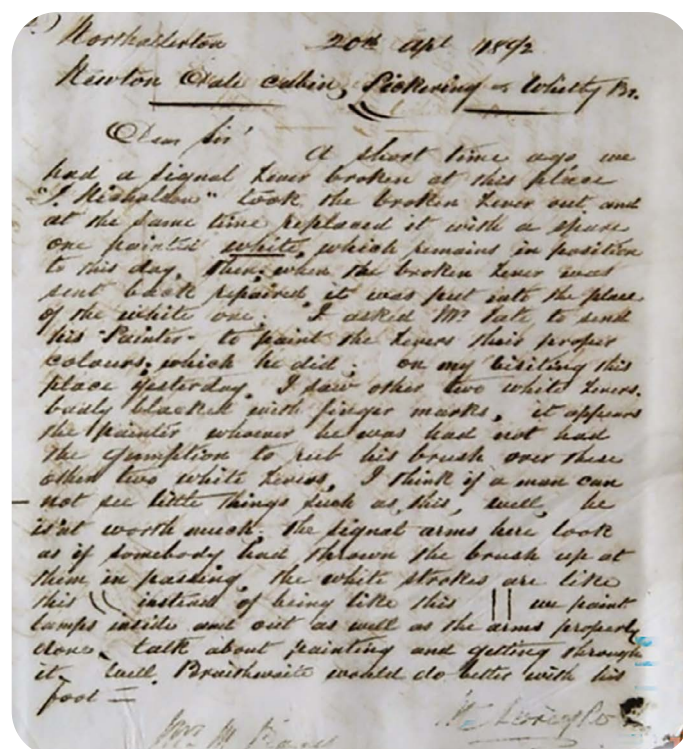 Northallerton 20th Apl 1892
Newton Dale cabin, Pickering & Whitby Br.
Dear Sir
A short time ago we
had a signal Lever broken at this place
"J. Nicholson" took the broken Lever out and
at the same time replaced it with a spare
one painted white, which remains in position
to this day. then, when the broken Lever was
sent back repaired it was put into the place
of the white one. I asked Mr. Tate to send
his "Painter" to paint the Levers their proper
colours, which he did; on my visiting this
place yesterday I saw other two white Levers
badly blacked with finger marks, it appears
the painter whoever he was had not had
the gumption to rub his brush over these
other two white Levers, I think if a man can
not see little things such as this, well, he
isn't worth much. the signal arms here look
as if somebody had thrown the brush up at
them in passing, the white strokes are like
this (( instead of being like this || we paint
lamps inside and out as well as the arms properly
done. talk about painting and getting through
it Will Braithwaite would do better with his
foot =
Mr. M.